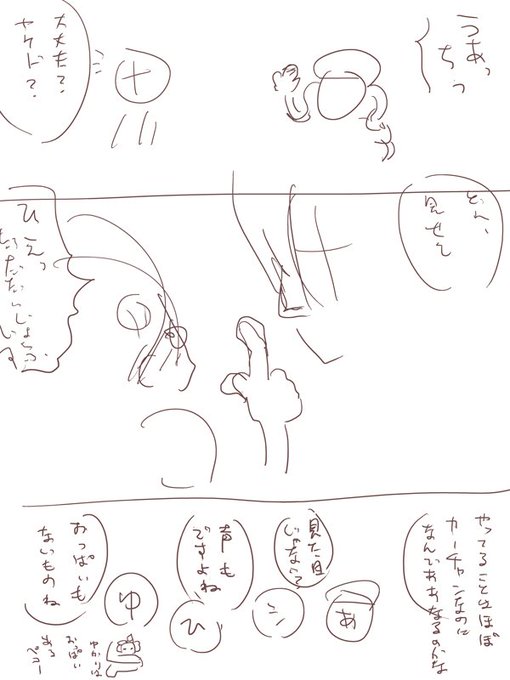 うあっ
ちっ
大丈夫？
ヤケド？
どれ、
見せて
ひえっ
やってることはほぼ
カーチャンなのに
なんでああなるのかな
見た目
じゃない？
声も
ですよね
おっぱいも
ないものね
あ
シ
ひ
ゆ
ゆかりは
おっぱい
ある
ペコー